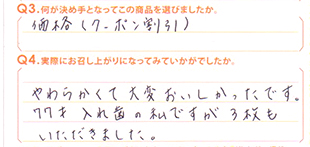 Q3.何が決め手となってこの商品を選びましたか。
価格(クーポン割引)
Q4.実際にお召し上がりになってみていかがでしたか。
やわらかくて大変おいしかったです。
77才 入れ歯の私ですが3枚も
いただきました。